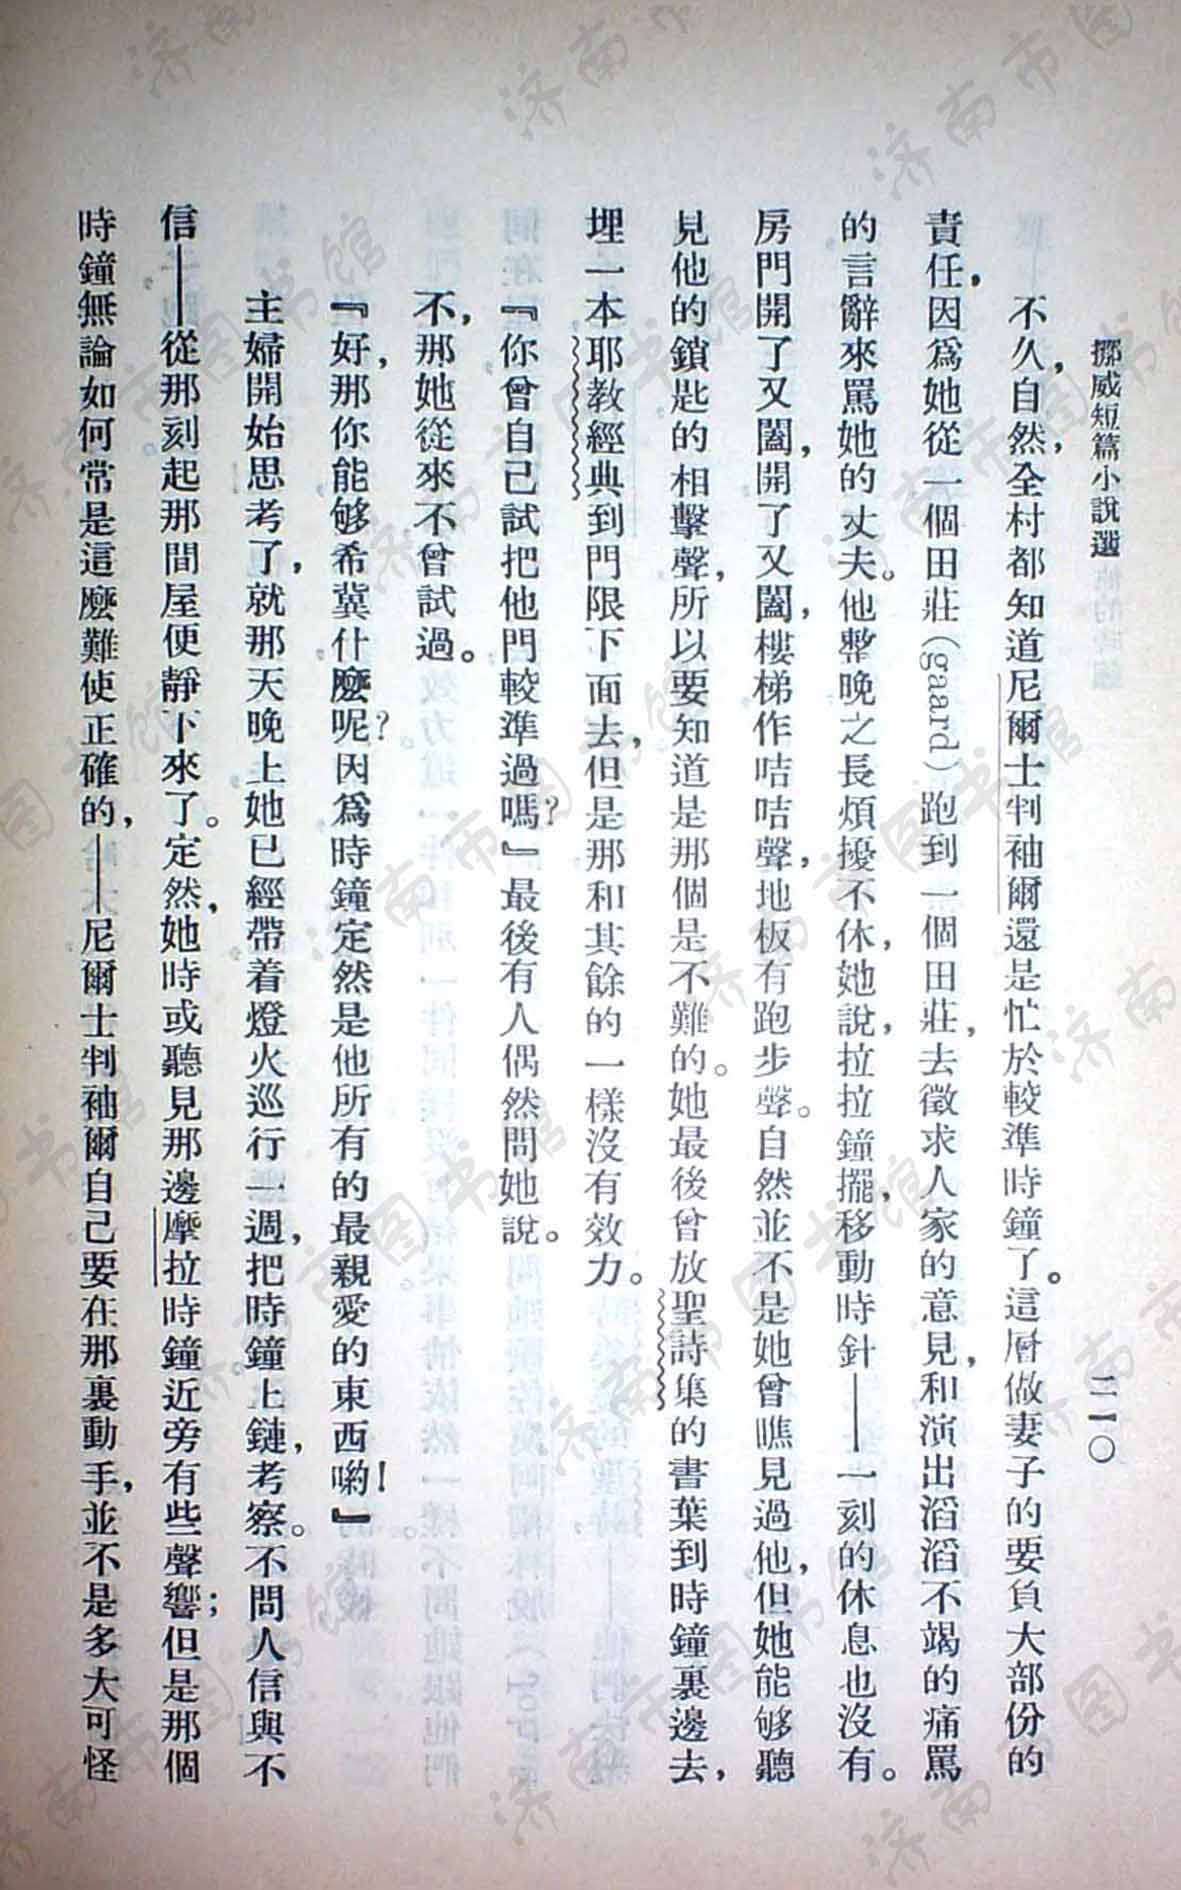 挪威短篇小說選
二一〇
不久，自然，全村都知道尼爾士判袖爾還是忙於較準時鐘了。這層做妻子的要負大部份的
責任，因爲她從一個田莊(gaard)跑到一個田莊，去徵求人家的意見，和演出滔滔不竭的痛罵
的言辭來罵她的丈夫。他整晚之長煩擾不休，她說，拉拉鐘擺，移動時針——一刻的休息也沒有。
房門開了又闔，開了又闔，樓梯作咭咭聲，地板有跑步聲。自然並不是她曾瞧見過他，但她能够聽
見他的鎖匙的相擊聲，所以要知道是那個是不難的。她最後曾放聖詩集的書葉到時鐘裏邊去，
埋一本耶教經典到門限下面去，但是那和其餘的一樣沒有效力。
『你曾自己試把他門較準過嗎？』最後有人偶然問她說。
不，那她從來不曾試過。
『好，那你能够希冀什麼呢？因爲時鐘定然是他所有的最親愛的東西喲！』
主婦開始思考了，就那天晚上她已經帶着燈火巡行一週，把時鐘上鏈，考察。不問人信與不
信——從那刻起那間屋便靜下來了。定然，她時或聽見那邊摩拉時鐘近旁有些聲響；但是那個
時鐘無論如何常是這麼難使正確的，——尼爾士判袖爾自己要在那裏動手，並不是多大可怪